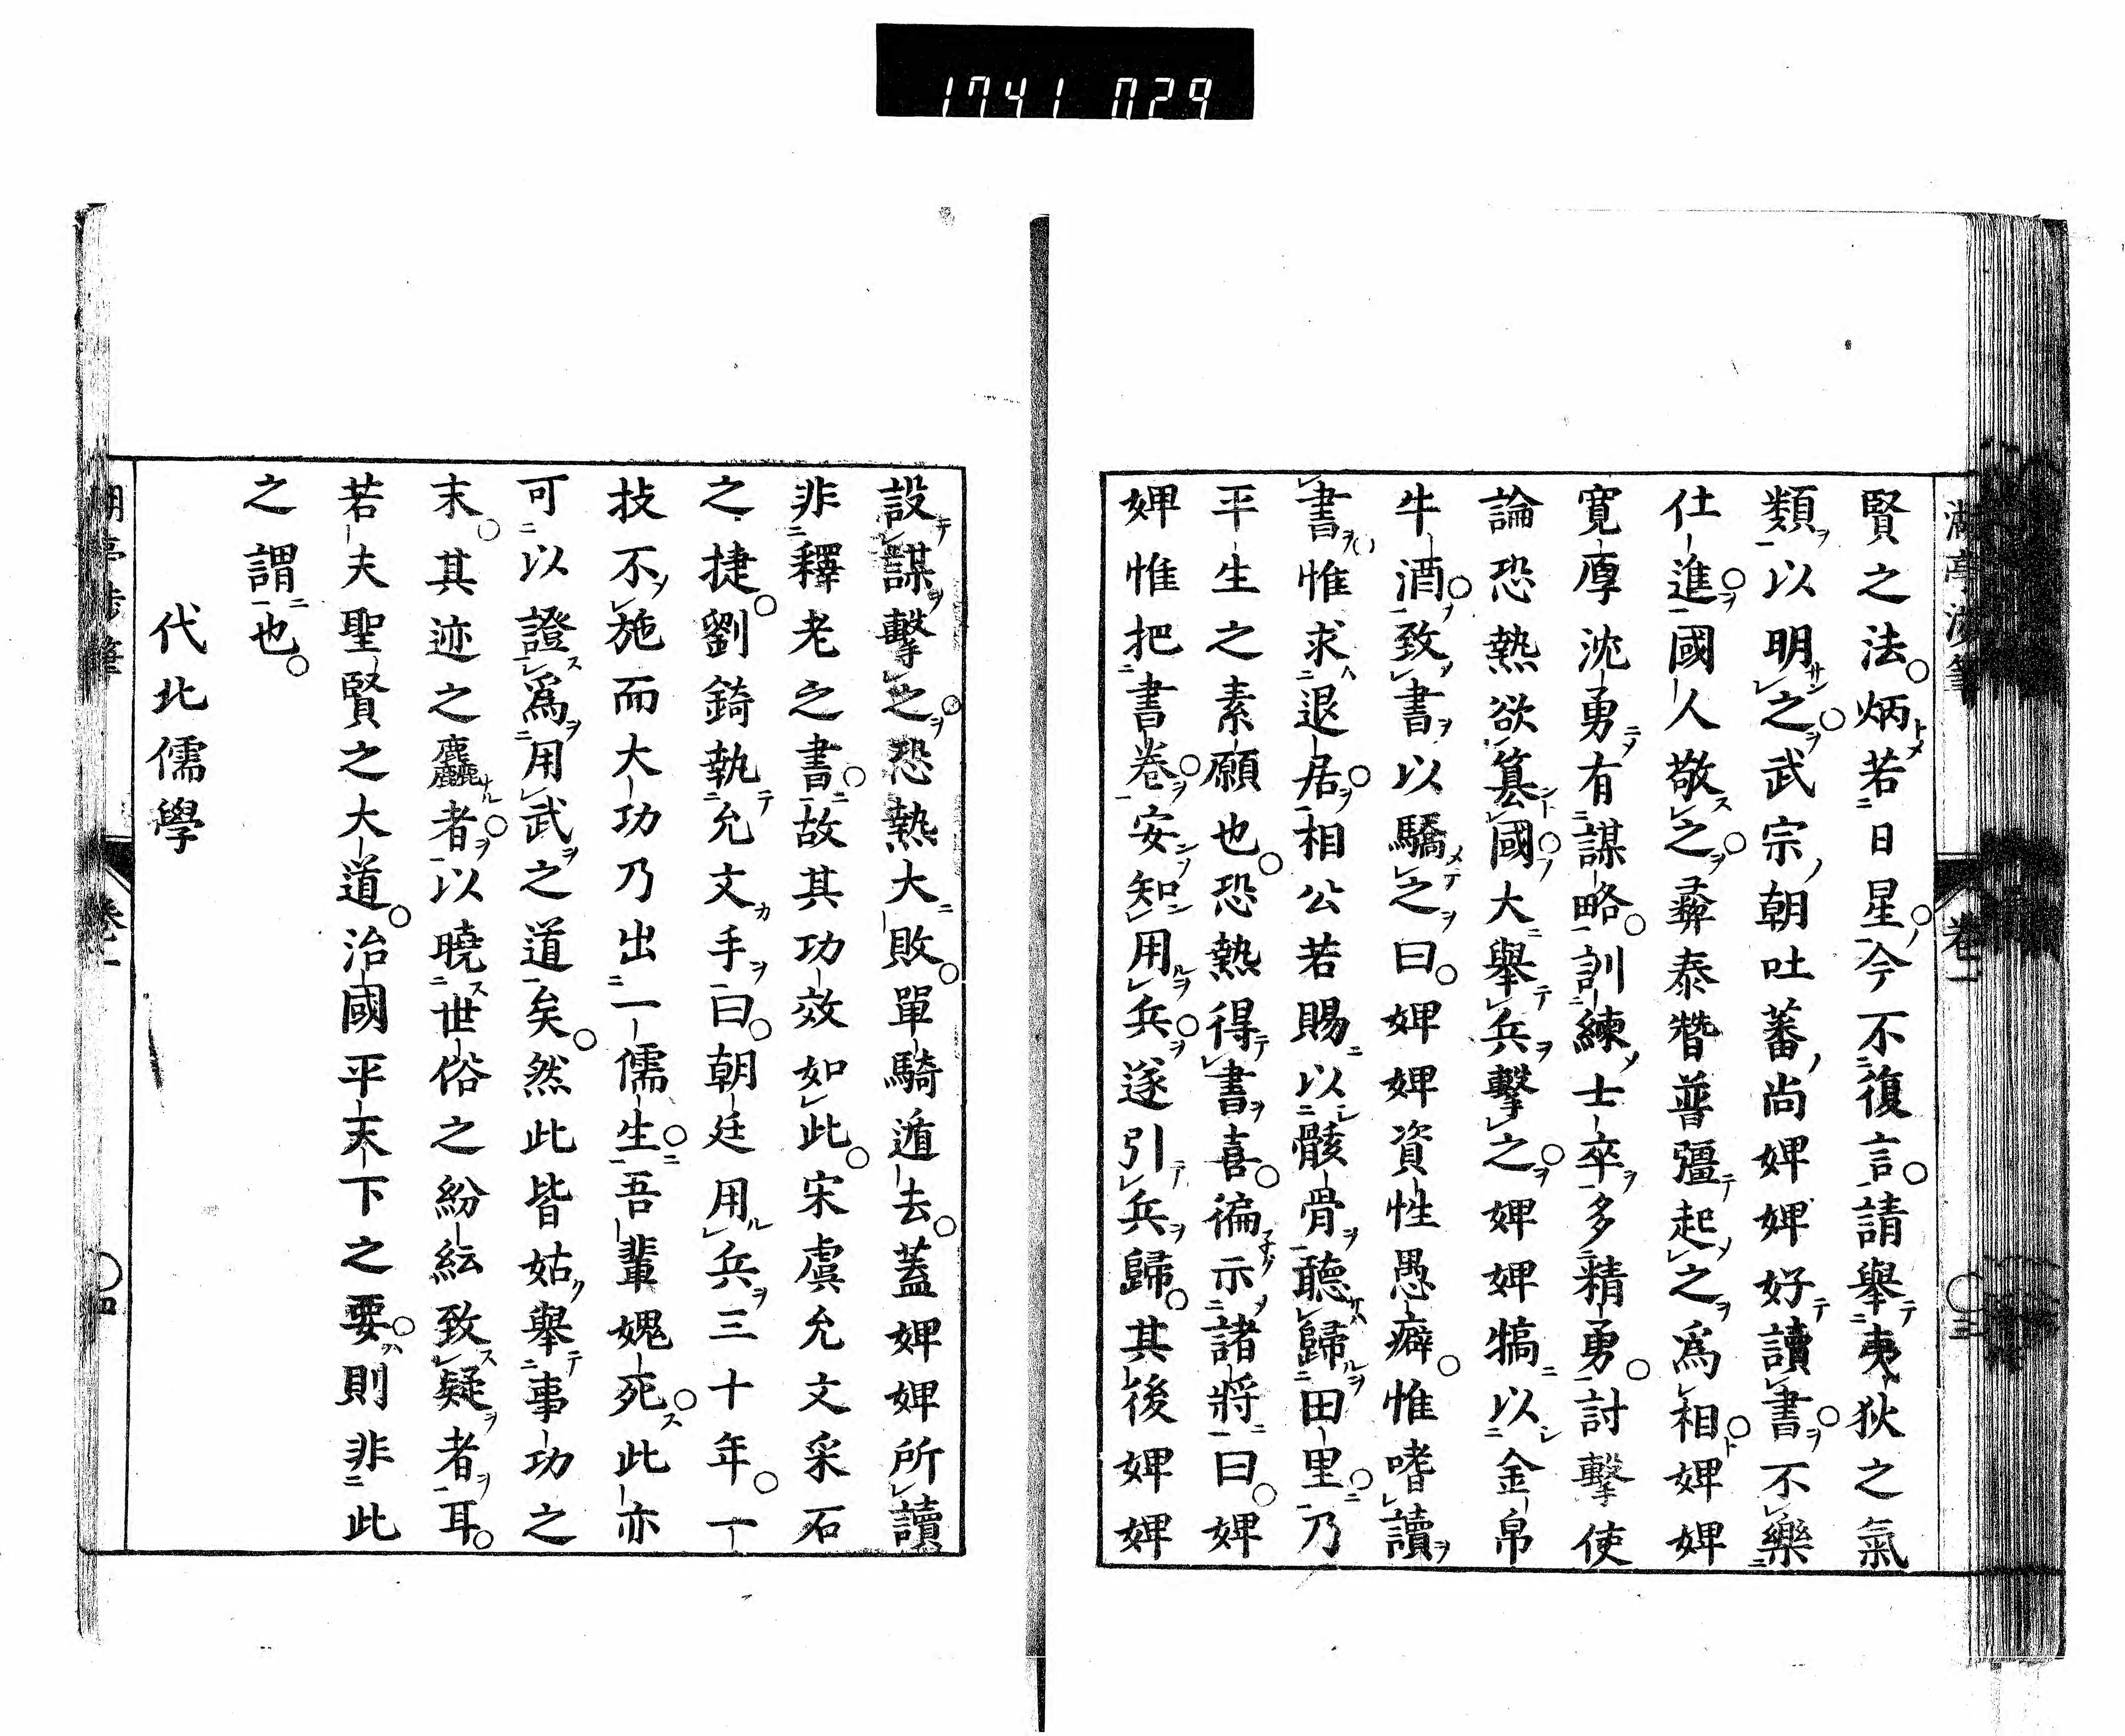 1741 029
賢之法。炳若日星。今不復言。請舉夷狄之氣
類以明之。武宗朝吐蕃尚婢婢好讀書。不樂
仕進。國人敬之。彝泰贊普彊起之爲相。婢婢
寬厚沈勇有謀略。訓練士卒多精勇。討擊使
論恐熱欲篡國。大舉兵擊之。婢婢犒以金帛
牛酒。致書以驕之曰。婢婢資性愚癖。惟嗜讀
書惟求退居。相公若賜以骸骨聽歸田里。乃
平生之素願也。恐熱得書喜。徧示諸將曰。婢
婢惟把書卷。安知用兵。遂引兵歸。其後婢婢
卷一
設謀擊之。恐熱大敗。單騎遁去。蓋婢婢所讀
非釋老之書。故其功效如此。宋虞允文采石
之捷。劉錡執允文手曰。朝廷用兵三十年。一
技不施而大功乃出一儒生。吾輩媿死。此亦
可以證爲用武之道矣。然此皆姑舉事功之
末。其迹之麤者。以曉世俗之紛紜致疑者耳。
若夫聖賢之大道。治國平天下之要。則非此
之謂也。
代北儒學